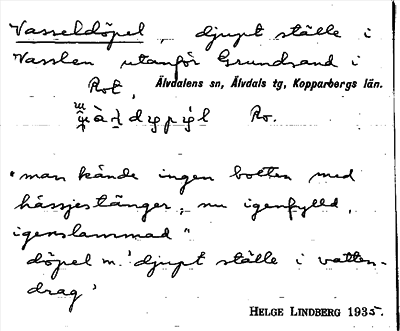 Vasseldöpel, djupt ställe i
Vasslen utanför Grundsand i
Rot, Älvdalens sn, Älvdals tg, Kopparbergs län.
Ro.
"man kände ingen botten med
hässjestänger; nu igenfylld,
igenslammad"
döpel m. 'djupt ställe i vatten-
drag'
HELGE LINDBERG 1935.